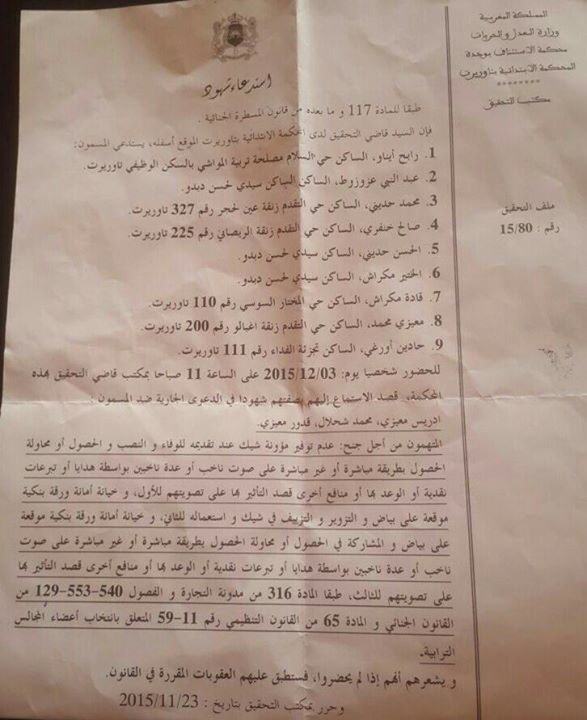 المملكة المغربية
وزارة العدل والحريات
محكمة الاستئناف بوجدة
المحكمة الابتدائية بتاوريرت
********
مكتب التحقيق
ملف التحقيق
رقم : 15/80
استدعاء شهود
طبقا للمادة 117 و ما بعده من قانون المسطرة الجنائية .
فإن السيد قاضي التحقيق لدى المحكمة الابتدائية بتاوريرت الموقع أسفله، يستدعي المسمون:
1. رابح أيناو، الساكن حي السلام مصلحة تربية المواشي بالسكن الوظيفي تاوريرت.
2. عبد النبي عزوزوط، الساكن الساكن سيدي لحسن دبدو.
3. محمد حديني، الساكن حي التقدم زنقة عين لحجر رقم 327 تاوريرت.
4. صالح خنفري، الساكن حي التقدم زنقة الريصاني رقم 225 تاوريرت.
5. الحسن حديني، الساكن سيدي لحسن دبدو.
6. الختير مكراش، الساكن سيدي لحسن دبدو.
7. قادة مكراش، الساكن حي المختار السوسي رقم 110 تاوريرت.
8. معيزي محمد، الساكن حي التقدم زنقة اغبالو رقم 200 تاوريرت.
9. حادين أورغي، الساكن تجزئة الفداء رقم 111 تاوريرت.
للحضور شخصيا يوم: 2015/12/03 على الساعة 11 صباحا بمكتب قاضي التحقيق بهذه
المحكمة، قصد الاستماع إليهم بصفتهم شهودا في الدعوى الجارية ضد المسمون :
ادريس معيزي، محمد شحلال، قدور معيزي.
المتهمون من أجل جنح: عدم توفير مؤونة شيك عند تقديمه للوفاء و النصب و الحصول أو محاولة
الحصول بطريقة مباشرة أو غير مباشرة على صوت ناخب أو عدة ناخبين بواسطة هدايا أو تبرعات
نقدية أو الوعد بها أو منافع أخرى قصد التأثير بها على تصويتهم للأول، و خيانة أمانة ورقة بنكية
موقعة على بياض و التزوير و التزييف في شيك و استعماله للثاني، و خيانة أمانة ورقة بنكية موقعة
على بياض و المشاركة في الحصول أو محاولة الحصول بطريقة مباشرة أو غير مباشرة على صوت
ناخب أو عدة ناخبين بواسطة هدايا أو تبرعات نقدية أو الوعد بها أو منافع أخرى قصد التأثير بها
على تصويتهم للثالث، طبقا المادة 316 من مدونة التجارة و الفصول 540-553-129 من
القانون الجنائي و المادة 65 من القانون التنظيمي رقم 11-59 المتعلق بانتخاب أعضاء المجالس
الترابية.
و يشعرهم أنهم إذا لم يحضروا، فستطبق عليهم العقوبات المقررة في القانون.
وحرر بمكتب التحقيق بتاريخ : 2015/11/23